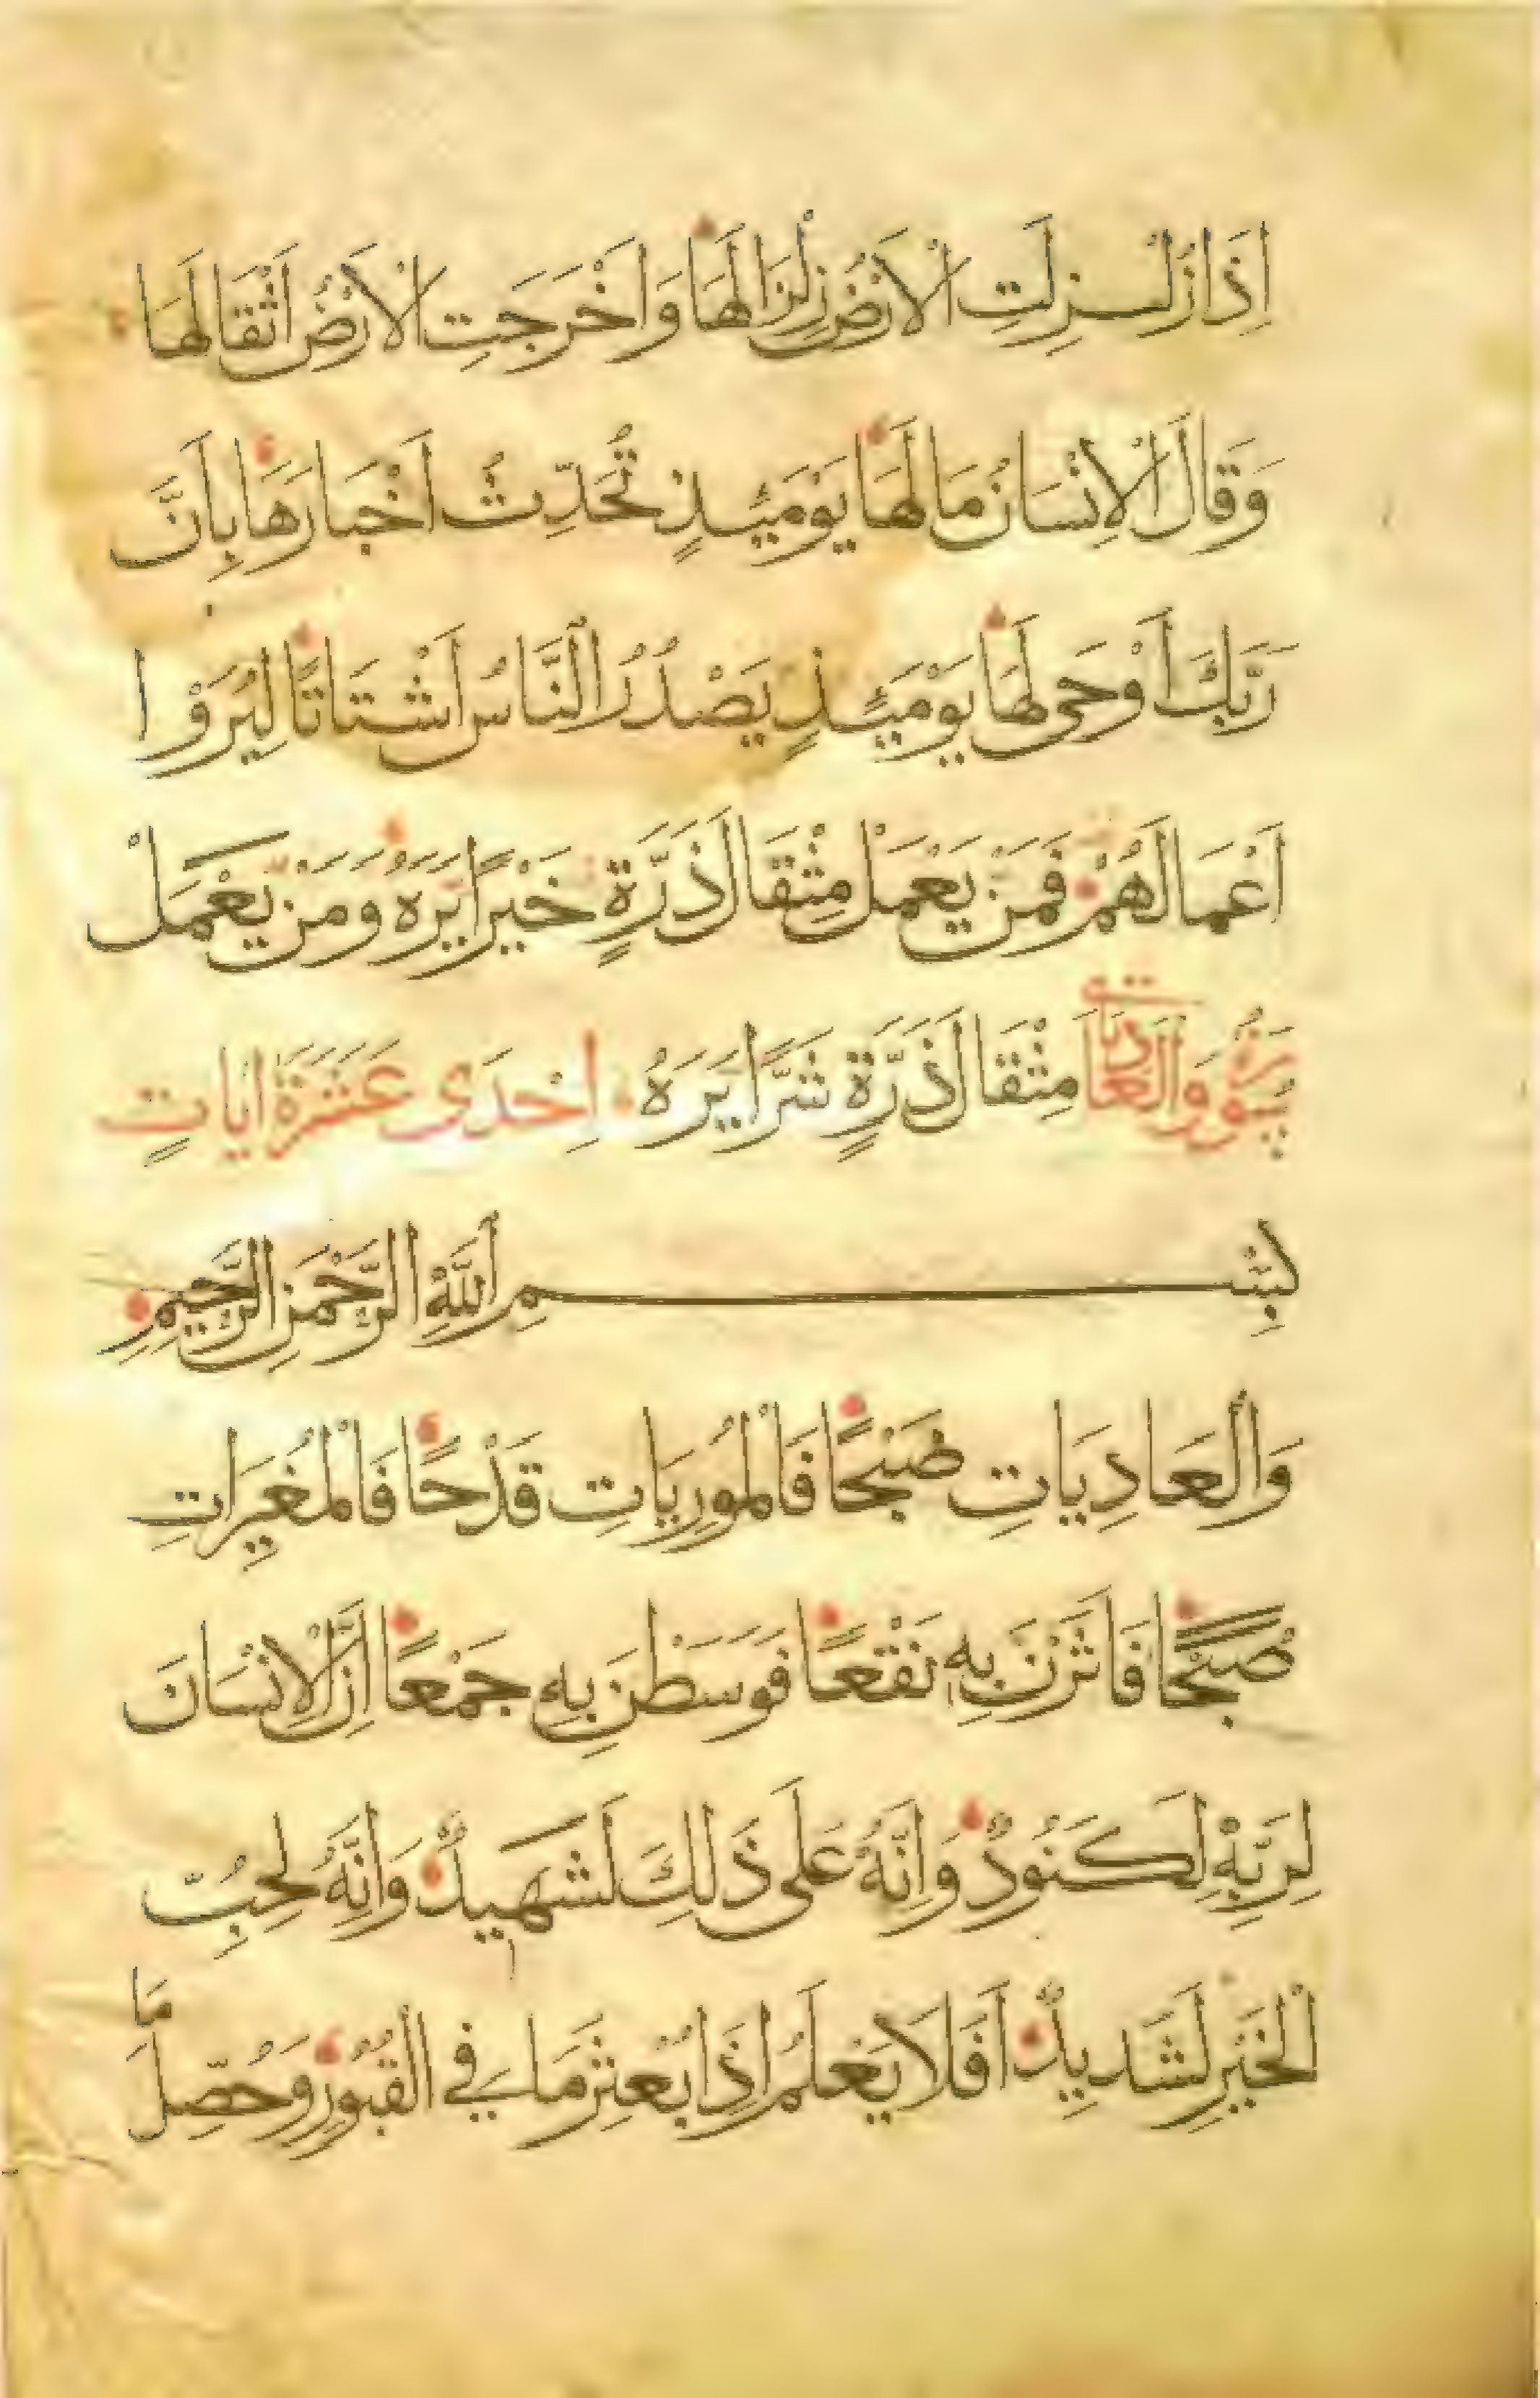 اِذَا زُلْزِلَتِ الْاَرْضُ زِلْزَالَهَا وَاَخْرَجَتِ الْاَرْضُ اَثْقَالَهَا
وَقَالَ الْاِنْسَانُ مَا لَهَا يَوْمَئِذٍ تُحَدِّثُ اَخْبَارَهَا بِاَنَّ
رَبَّكَ اَوْحَى لَهَا يَوْمَئِذٍ يَصْدُرُ النَّاسُ اَشْتَاتًا لِيُرَوْا
اَعْمَالَهُمْ فَمَنْ يَعْمَلْ مِثْقَالَ ذَرَّةٍ خَيْرًا يَرَهُ وَمَنْ يَعْمَلْ
سُورَةُ وَالْعَادِيَاتِ مِثْقَالَ ذَرَّةٍ شَرًّا يَرَهُ اِحْدَى عَشَرَةَ اٰيَاتٍ
بِسْمِ اللَّهِ الرَّحْمَنِ الرَّحِيمِ
وَالْعَادِيَاتِ ضَبْحًا فَالْمُورِيَاتِ قَدْحًا فَالْمُغِيرَاتِ
صُبْحًا فَاَثَرْنَ بِهِ نَقْعًا فَوَسَطْنَ بِهِ جَمْعًا اِنَّ الْاِنْسَانَ
لِرَبِّهِ لَكَنُودٌ وَاِنَّهُ عَلَى ذَلِكَ لَشَهِيدٌ وَاِنَّهُ لِحُبِّ
الْخَيْرِ لَشَدِيدٌ اَفَلَا يَعْلَمُ اِذَا بُعْثِرَ مَا فِي الْقُبُورِ وَحُصِّلَ مَا